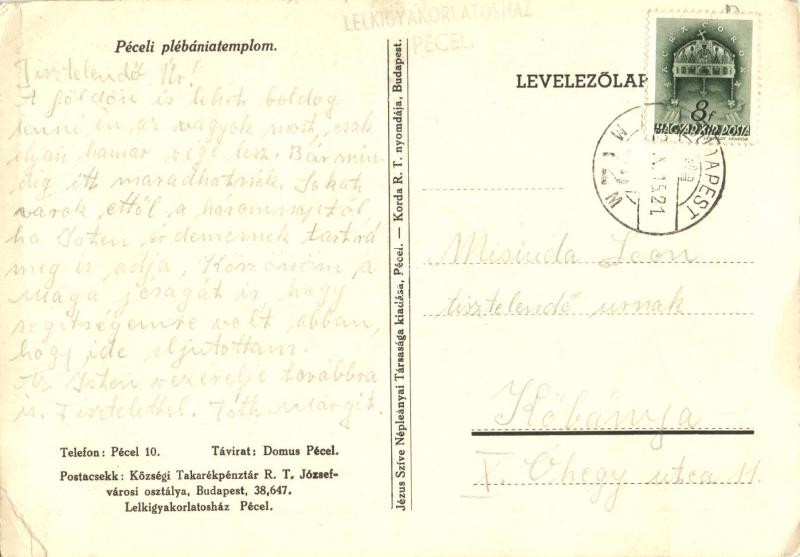 Péceli plébániatemplom.
Tisztelendő Úr!
A földön is lehet boldog
lenni én az vagyok most, csak
olyan hamar vége lesz. Bár min-
dig itt maradhatnék. Sokat
várok ettől a háromnaptól
ha Isten érdemesnek tart rá
meg is adja, Köszönöm a
maga jóságát is hogy
segítségemre volt abban,
hogy ide eljutottam.
Az Isten vezérelje továbbra
is. Tisztelettel. Tóth Margit.
Telefon: Pécel 10. Távirat: Domus Pécel.
Postacsekk: Községi Takarékpénztár R. T. József-
városi osztálya, Budapest, 38,647.
Lelkigyakorlatosház Pécel.
Jézus Szíve Népleányai Társasága kiadása, Pécel. — Korda R. T. nyomdája, Budapest.
LELKIGYAKORLATOSHÁZ
PÉCEL.
LEVELEZŐLAP
SACRA CORONA
8f
MAGYAR KIR. POSTA
BUDAPEST
Misiuda Leon
tisztelendő urnak
Kőbánya
X. Óhegy utca 11.